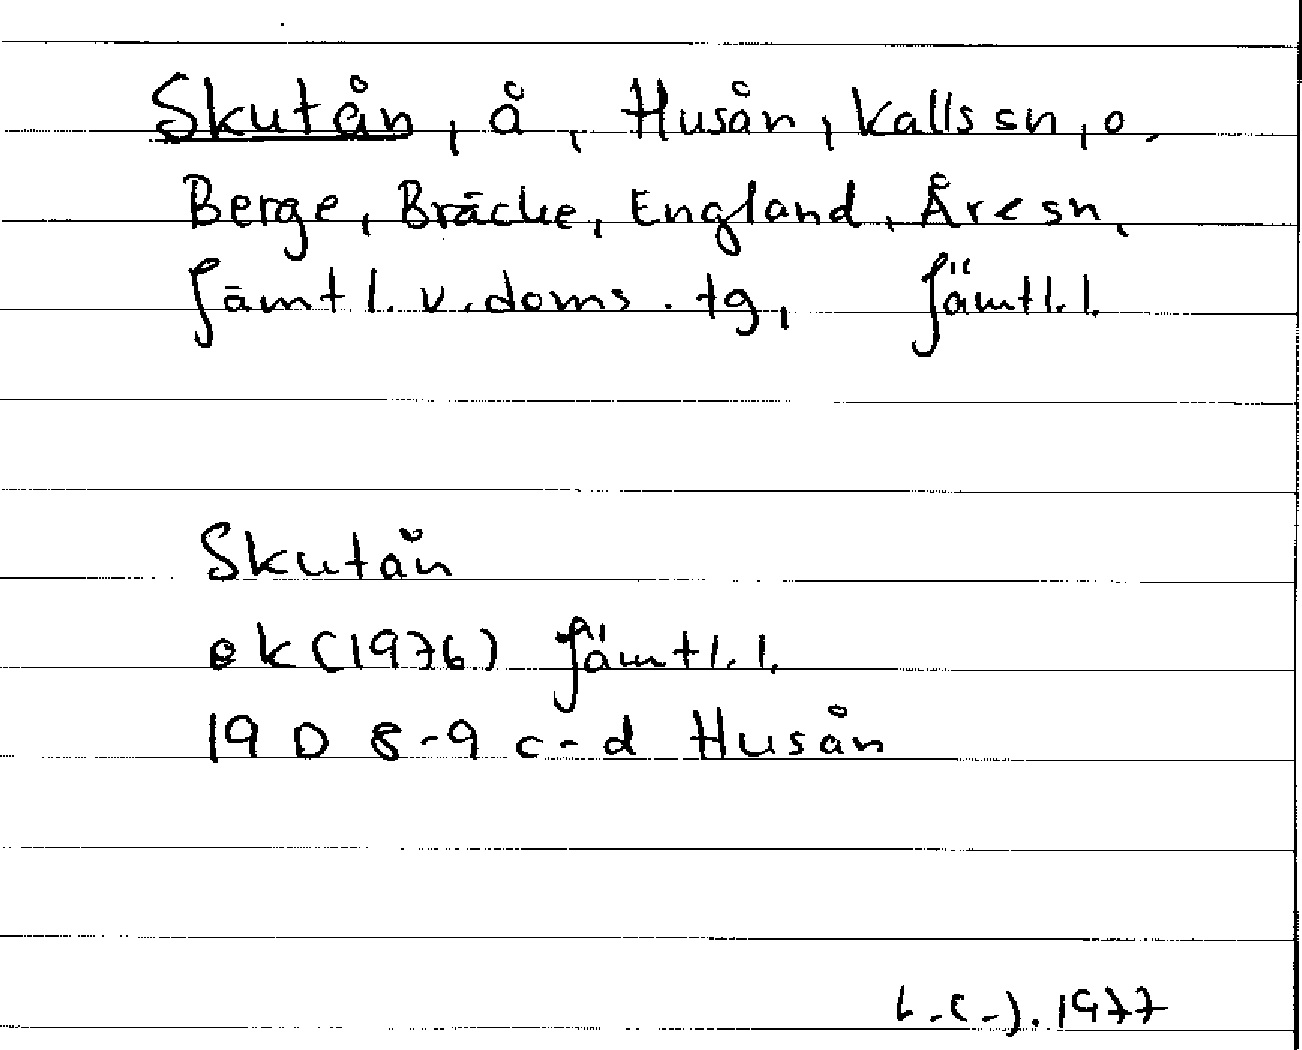 Skutån, å, Husån, Kalls sn, o.
Berge, Bräcke, England, Åre sn,
Jämtl. v. doms. tg, Jämtl. l.
Skutån
ek (1976) Jämtl. l.
19 D 8-9 c-d Husån
1977